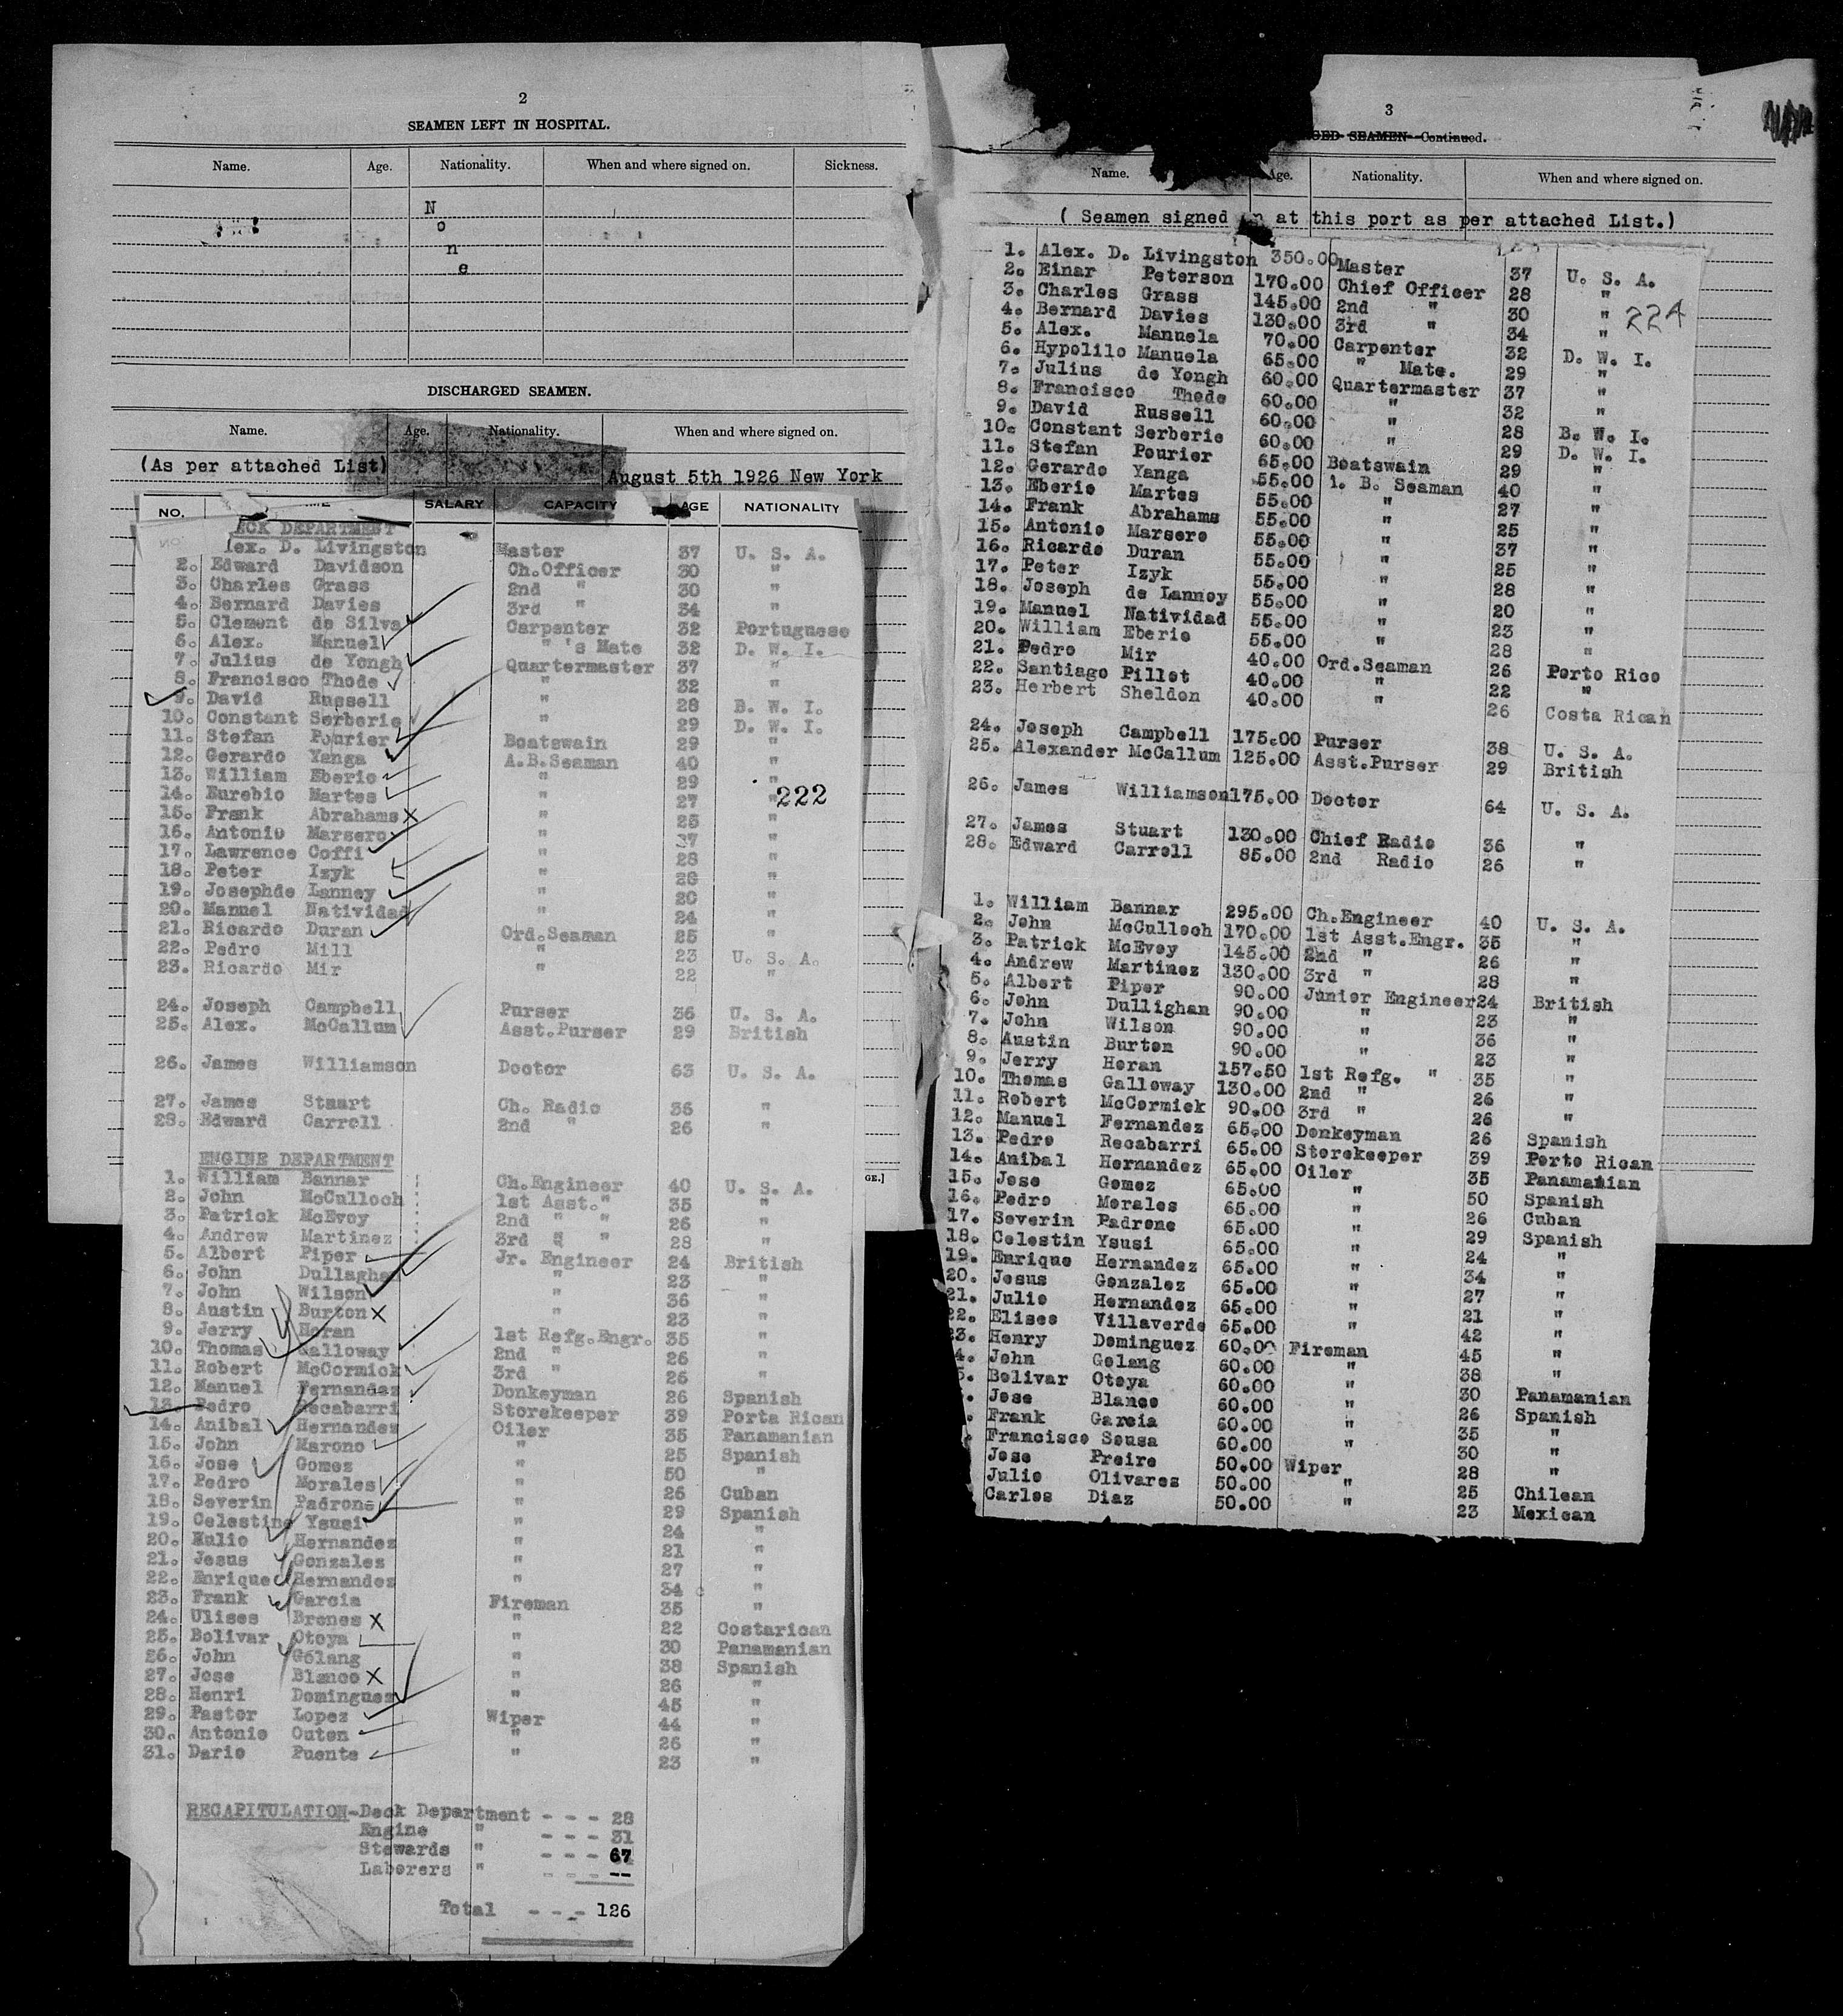 2
SEAMEN LEFT IN HOSPITAL.
Name. Age. Nationality. When and where signed on. Sickness.
N
o
n
e
DISCHARGED SEAMEN.
Name. Age. Nationality. When and where signed on.
(As per attached List) August 5th 1926 New York
NO. SALARY CAPACITY AGE NATIONALITY
ECK DEPARTMENT
lex. D. Livingston Master 37 U. S. A.
2. Edward Davidson Ch.Officer 30 "
3. Charles Grass 2nd " 30 "
4. Bernard Davies 3rd " 34 "
5. Clement de Silva Carpenter 32 Portuguese
6. Alex. Manuel " 's Mate 32 D. W. I.
7. Julius de Yongh Quartermaster 37 "
8. Francisco Thode " 32 "
9. David Russell " 28 B. W. I.
10. Constant Serberie " 29 D. W. I.
11. Stefan Pourier Boatswain 29 "
12. Gerardo Yanga A.B.Seaman 40 "
13. William Eberie " 29 "
14. Eurebio Martes " 27 " 222
15. Frank Abrahams " 25 "
16. Antonio Marsero " 37 "
17. Lawrence Coffi " 28 "
18. Peter Izyk " 28 "
19. Josephde Lanney " 20 "
20. Manuel Natividad " 24 "
21. Ricardo Duran Ord.Seaman 25 "
22. Pedro Mill " 23 U. S. A.
23. Ricardo Mir " 22 "
24. Joseph Campbell Purser 36 U. S. A.
25. Alex. McCallum Asst.Purser 29 British
26. James Williamson Doctor 63 U. S. A.
27. James Stuart Ch. Radio 36 "
28. Edward Carroll 2nd " 26 "
ENGINE DEPARTMENT
1. William Bannar Ch.Engineer 40 U. S. A.
2. John McCulloch 1st Asst." 35 "
3. Patrick McEvoy 2nd " " 26 "
4. Andrew Martinez 3rd " " 28 "
5. Albert Piper Jr. Engineer 24 British
6. John Dullaghan " 23 "
7. John Wilson " 36 "
8. Austin Burton " 23 "
9. Jerry Horan 1st Refg.Engr. 35 "
10. Thomas Galloway 2nd " 26 "
11. Robert McCormick 3rd " 26 "
12. Manuel Fernandez Donkeyman 26 Spanish
13. Pedro Recabarri Storekeeper 39 Porta Rican
14. Anibal Hernandez Oiler 35 Panamanian
15. John Marono " 25 Spanish
16. Jose Gomez " 50 "
17. Pedro Morales " 26 Cuban
18. Severin Padrone " 29 Spanish
19. Celestine Ysusi " 24 "
20. Eulio Hernandez " 21 "
21. Jesus Gonzales " 27 "
22. Enrique Hernandez " 34 "
23. Frank Garcia Fireman 35 "
24. Ulises Brenes " 22 Costarican
25. Bolivar Otoya " 30 Panamanian
26. John Golang " 38 Spanish
27. Jose Blanco " 26 "
28. Henri Dominguez " 45 "
29. Pastor Lopez Wiper 44 "
30. Antonio Outen " 26 "
31. Dario Puente " 23 "
RECAPITULATION-Deck Department - - - 28
Engine " - - - 31
Stewards " - - - 67
Laborers " - - - --
Total - - - 126
3
GED SEAMEN—Continued.
Name. Age. Nationality. When and where signed on.
( Seamen signed n at this port as per attached List.)
1. Alex. D. Livingston 350.00 Master 37 U. S. A.
2. Einar Peterson 170.00 Chief Officer 28 "
3. Charles Grass 145.00 2nd " 30 " 224
4. Bernard Davies 130.00 3rd " 34 "
5. Alex. Manuela 70.00 Carpenter 32 D. W. I.
6. Hypolilo Manuela 65.00 " Mate. 29 "
7. Julius de Yongh 60.00 Quartermaster 37 "
8. Francisco Thode 60.00 " 32 "
9. David Russell 60.00 " 28 B. W. I.
10. Constant Serberie 60.00 " 29 D. W. I.
11. Stefan Pourier 65.00 Boatswain 29 "
12. Gerardo Yanga 55.00 . B. Seaman 40 "
13. Eberie Martes 55.00 " 27 "
14. Frank Abrahams 55.00 " 25 "
15. Antonio Marsero 55.00 " 37 "
16. Ricardo Duran 55.00 " 25 "
17. Peter Izyk 55.00 " 28 "
18. Joseph de Lannoy 55.00 " 20 "
19. Manuel Natividad 55.00 " 23 "
20. William Eberie 55.00 " 28 "
21. Pedro Mir 40.00 Ord.Seaman 26 Porto Rico
22. Santiago Pillot 40.00 " 22 "
23. Herbert Sheldon 40.00 " 26 Costa Rican
24. Joseph Campbell 175.00 Purser 38 U. S. A.
25. Alexander McCallum 125.00 Asst.Purser 29 British
26. James Williamson 175.00 Doctor 64 U. S. A.
27. James Stuart 130.00 Chief Radio 36 "
28. Edward Carroll 85.00 2nd Radio 26 "
1. William Bannar 295.00 Ch.Engineer 40 U. S. A.
2. John McCulloch 170.00 1st Asst.Engr. 35 "
3. Patrick McEvoy 145.00 2nd " 26 "
4. Andrew Martinez 130.00 3rd " 28 "
5. Albert Piper 90.00 Junior Engineer 24 British
6. John Dullighan 90.00 " 23 "
7. John Wilson 90.00 " 36 "
8. Austin Burton 90.00 " 23 "
9. Jerry Horan 157.50 1st Refg. " 35 "
10. Thomas Galloway 130.00 2nd " 26 "
11. Robert McCormick 90.00 3rd " 26 "
12. Manuel Fernandez 65.00 Donkeyman 26 Spanish
13. Pedro Recabarri 65.00 Storekeeper 39 Porto Rican
14. Anibal Hernandez 65.00 Oiler 35 Panamanian
15. Jose Gomez 65.00 " 50 Spanish
16. Pedro Morales 65.00 " 26 Cuban
17. Severin Padrone 65.00 " 29 Spanish
18. Celestin Ysusi 65.00 " 24 "
19. Enrique Hernandez 65.00 " 34 "
20. Jesus Gonzalez 65.00 " 27 "
21. Julio Hernandez 65.00 " 21 "
22. Elises Villaverde 65.00 " 42 "
23. Henry Dominguez 60.00 Fireman 45 "
4. John Golang 60.00 " 38 "
5. Bolivar Otoya 60.00 " 30 Panamanian
Jose Blanco 60.00 " 26 Spanish
Frank Garcia 60.00 " 35 "
Francisco Sousa 60.00 " 30 "
Jose Freire 50.00 Wiper 28 "
Julio Olivares 50.00 " 25 Chilean
Carlos Diaz 50.00 " 23 Mexican
GE.]